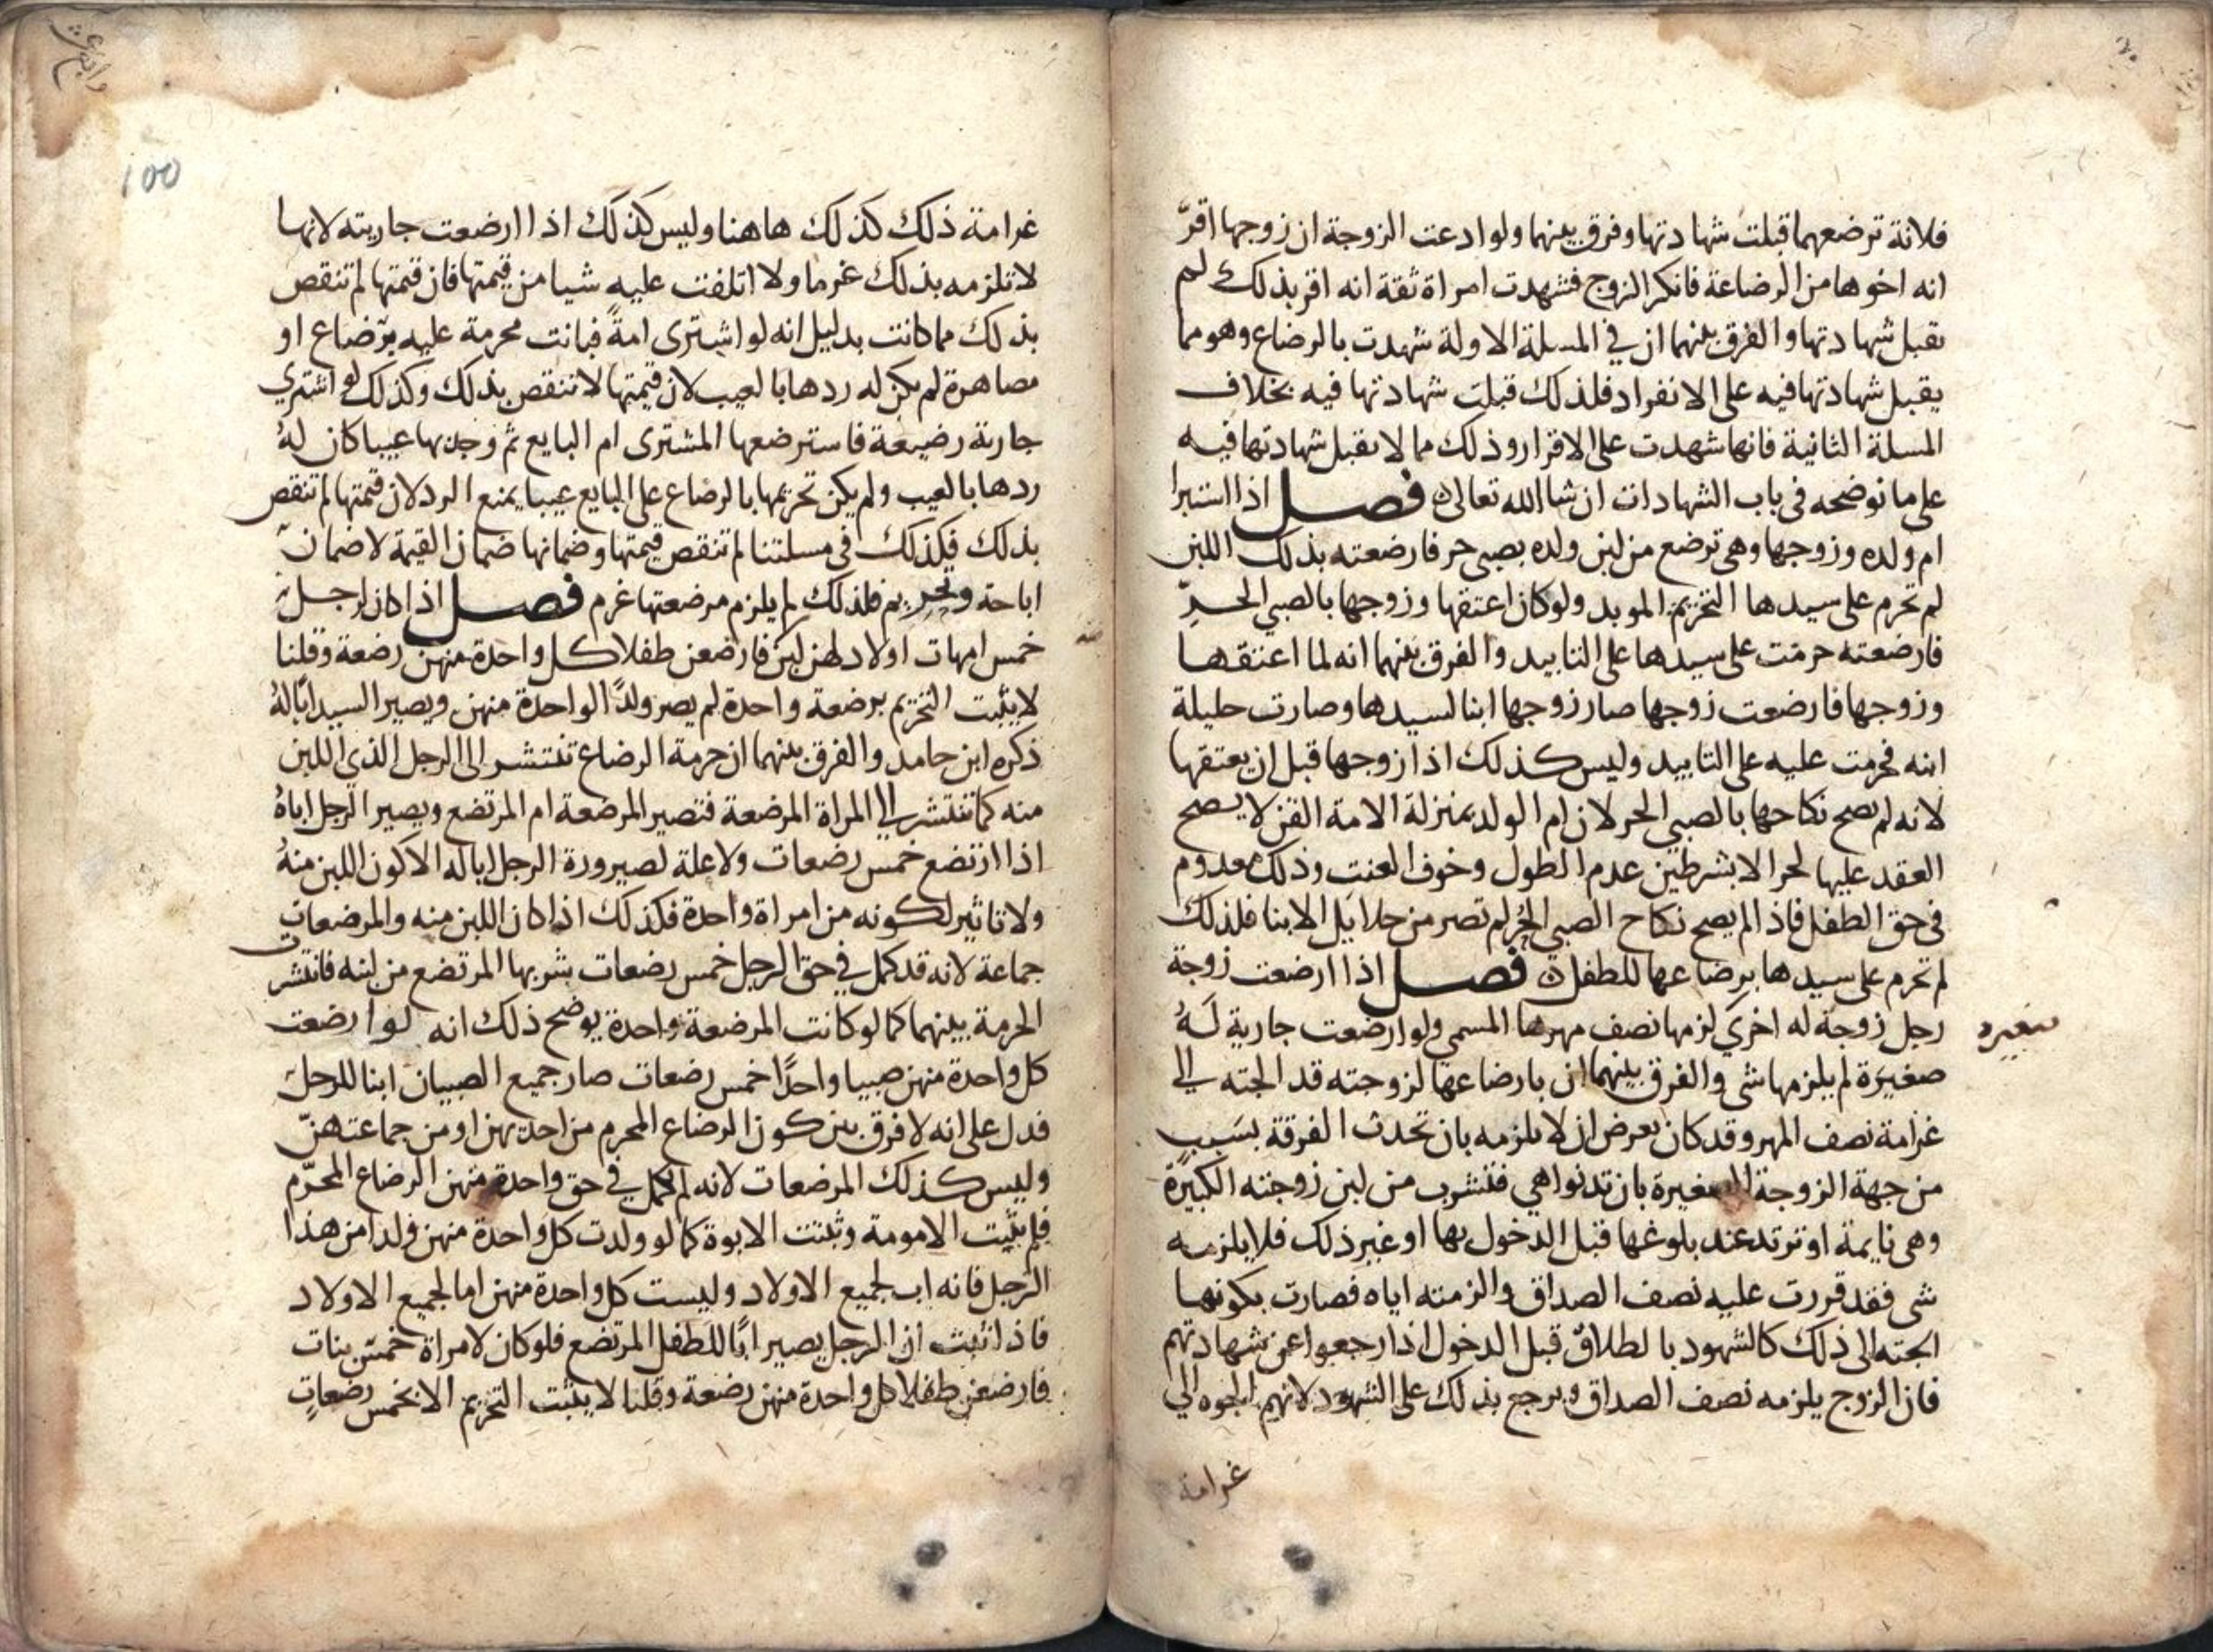 فلانة ترضعهما قبلت شهادتها وفرق بينهما ولو ادعت الزوجة ان زوجها اقرّ
انه اخوها من الرضاعة فانكر الزوج فشهدت امراة ثقة انه اقر بذلك لم
يقبل شهادتها والفرق بينهما ان في المسلة الاولة شهدت بالرضاع وهو مما
يقبل شهادتها فيه على الانفراد فلذلك قبلت شهادتها فيه بخلاف
المسلة الثانية فانها شهدت على الاقرار وذلك مما لا يقبل شهادتها فيه
على ما نوضحه في باب الشهادات ان شا الله تعالى فصل اذا استبرا
ام ولده وزوجها وهي ترضع من لبن ولده بصبي حر فارضعته بذلك اللبن
لم تحرم على سيدها التحريم الموبد ولو كان اعتقها وزوجها بالصبي الحرّ
فارضعته حرمت على سيدها على التابيد والفرق بينهما انه لما اعتقها
وزوجها فارضعت زوجها صار زوجها ابنا لسيدها وصارت حليلة
ابنه فحرمت عليه على التابيد وليس كذلك اذا زوجها قبل ان يعتقها
لانه لم يصح نكاحها بالصبي الحر لان ام الولد بمنزلة الامة القن لا يصح
العقد عليها لحر الا بشرطين عدم الطول وخوف العنت وذلك معدوم
في حق الطفل فاذا لم يصح نكاح الصبي الحُر لم تصر من حلايل الابنا فلذلك
لم تحرم على سيدها برضاعها للطفل فصل اذا ارضعت زوجة
رجل زوجة له اخرى لزمها نصف مهرها المسمى ولو ارضعت جارية لهُ
صغيره
صغيرة لم يلزمها شي والفرق بينهما ان بارضاعها لزوجته قد الجته الى
غرامة نصف المهر وقد كان بعرض ان لا يلزمه بان تحدث الفرقة بسبب
من جهة الزوجة الصغيرة بان تدنوا هي فتشرب من لبن زوجته الكبيرة
وهي نايمة او ترتد عند بلوغها قبل الدخول بها او غير ذلك فلا يلزمه
شي فقد قررت عليه نصف الصداق والزمته اياه فصارت بكونها
الجته الى ذلك كالشهود بالطلاق قبل الدخول اذا رجعوا عن شهادتهم
فان الزوج يلزمه نصف الصداق ويرجع بذلك على الشهود لانهم الجوه الى
غرامة
100
غرامة ذلك كذلك هاهنا وليس كذلك اذا ارضعت جاريته لانها
لا تلزمه بذلك غرما ولا اتلفت عليه شيا من قيمتها فان قيمتها لم تنقص
بذلك مما كانت بدليل انه لو اشترى امةً فبانت محرمة عليه برضاع او
مصاهرة لم يكن له ردها بالعيب لان قيمتها لا تنقص بذلك وكذلك لو اشترى
جارية رضيعة فاسترضعها المشترى ام البايع ثم وجد بها عيبا كان لهُ
ردها بالعيب ولم يكن تحريمها بالرضاع على البايع عيبا يمنع الرد لان قيمتها لم تنقص
بذلك فكذلك في مسلتنا لم تنقص قيمتها وضمانها ضمان القيمة لا ضمان
اباحة وتحريم فلذلك لم يلزم مرضعتها غرم فصل اذا كان لرجل
خمس امهات اولاد لهن لبن فارضعن طفلا كل واحدة منهن رضعة وقلنا
لا يثبت التحريم برضعة واحدة لم يصر ولدًا لواحدة منهن ويصير السيد ابًا لهُ
ذكره ابن حامد والفرق بينهما ان حرمة الرضاع تنتشر الى الرجل الذي اللبن
منه كما تنتشر الى المراة المرضعة فتصير المرضعة ام المرتضع ويصير الرجل اباهُ
اذا ارتضع خمس رضعات ولا علة لصيرورة الرجل ابا له الا كون اللبن منهُ
ولا تاثير لكونه من امراة واحدة فكذلك اذا كان اللبن منه والمرضعات
جماعة لانه قد كمل في حق الرجل خمس رضعات شربها المرتضع من لبنه فانتشرت
الحرمة بينهما كما لو كانت المرضعة واحدة يوضح ذلك انه لو ارضعت
كل واحدة منهن صبيا واحدًا خمس رضعات صار جميع الصبيان ابنا للرجل
فدل على انه لا فرق بين كون الرضاع المحرم من احديهن او من جماعتهنّ
وليس كذلك المرضعات لانه لم يكمل في حق واحدة منهن الرضاع المحرّم
فلم يثبت الامومة وثبتت الابوة كما لو ولدت كل واحدة منهن ولدا من هذا
الرجل فانه اب لجميع الاولاد وليست كل واحدة منهن اما لجميع الاولاد
فاذا ثبت ان الرجل يصير ابًا للطفل المرتضع فلو كان لامراة خمس بنات
فارضعن طفلا كل واحدة منهن رضعة وقلنا لا يثبت التحريم الا بخمس رضعاتٍ